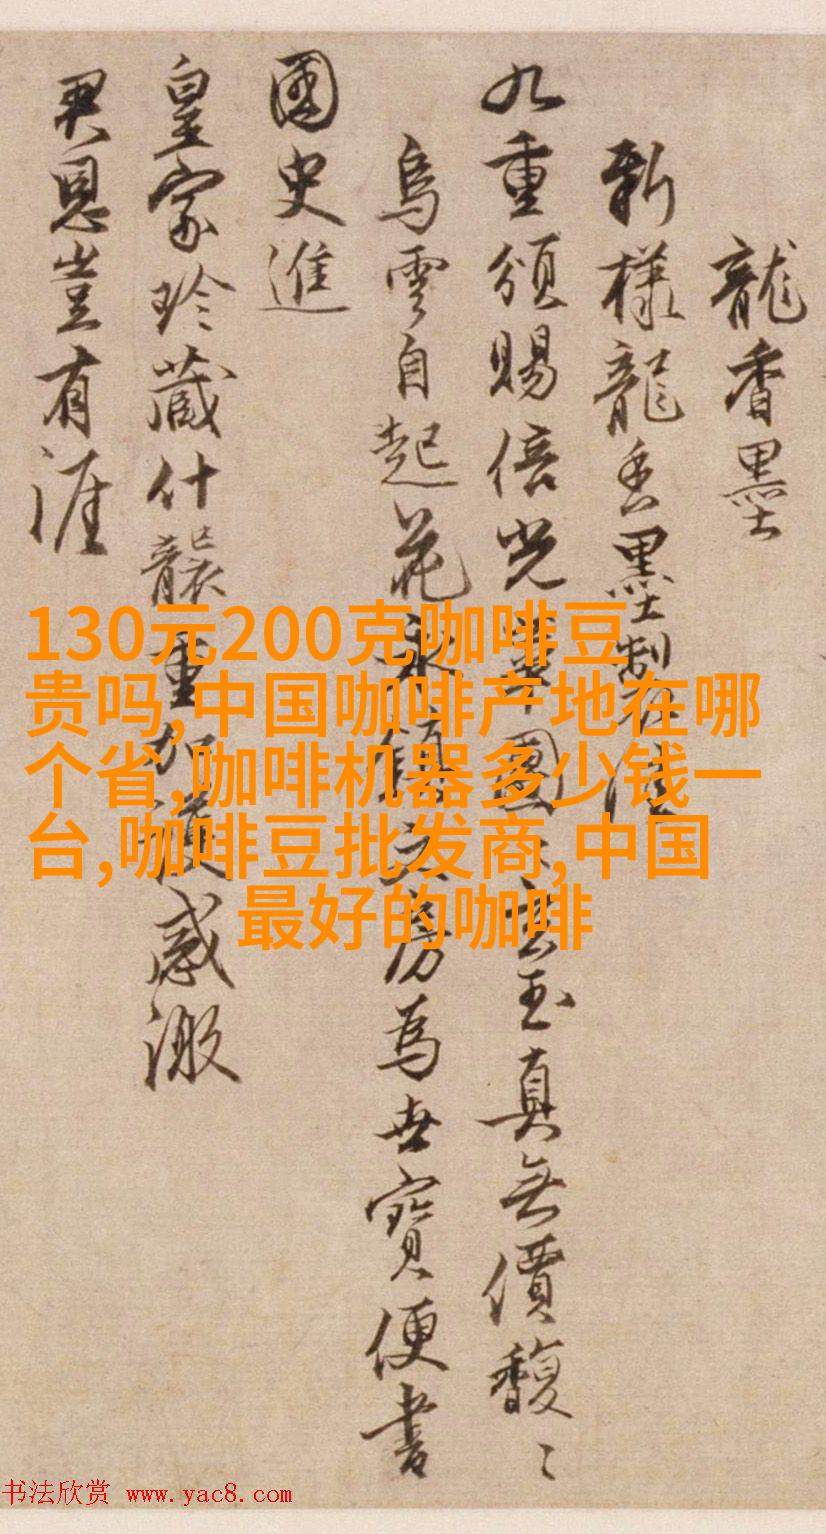 龍香墨
新樣龍香墨製在
九重頒賜倍光華圓玄玉真無價馥〻
烏雲自起花永鎮文房為世寶便書
國史進
皇家珍藏什襲重加護感激
君恩豈有涯
130元200克咖啡豆
贵吗,中国咖啡产地在哪
个省,咖啡机器多少钱一
台,咖啡豆批发商,中国
最好的咖啡
书法欣赏 www.yac8.com